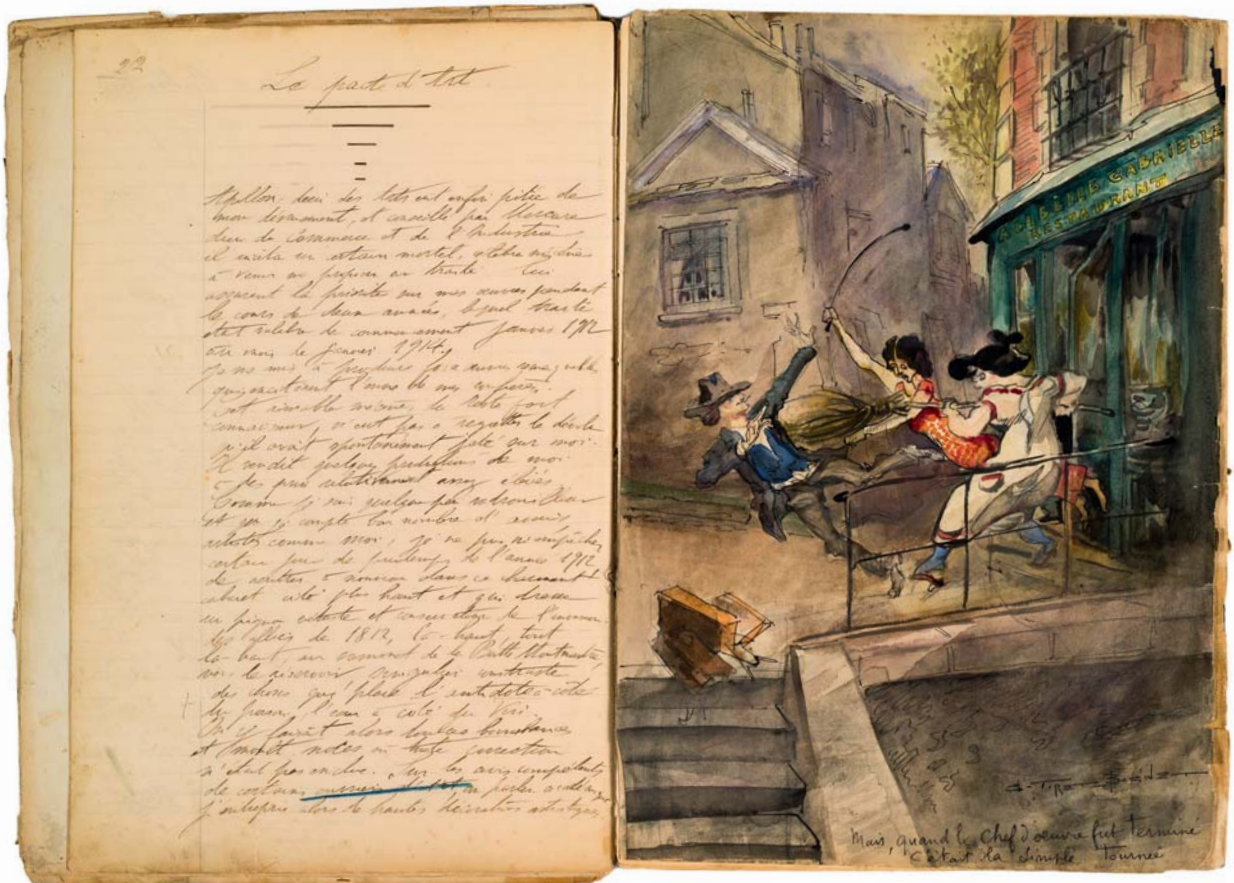 22
Le pacte d'Art
Apollon, dieu des Arts eut enfin pitié de
mon dévouement, et conseillé par Mercure
dieu du Commerce et de l'Industrie
il incita un certain mortel, célèbre
à venir me proposer un traité lui
assurant la priorité sur mes œuvres pendant
le cours de deux années, lequel traité
était valable de commencement Janvier 1912
au mois de Janvier 1914.
je me mis à produire
qui excitèrent l'envie de mes confrères.
cet aimable mécène, du reste fort
connaisseur, n'eut pas à regretter le
qu'il avait spontanément jeté sur moi.
Il vendit quelques productions de moi
à des prix relativement assez élevés
Comme je suis quelque peu
et que j'y compte bon nombre d'amis
artistes comme moi, je ne pus m'empêcher
certain jour de printemps de l'année 1912
de monter à nouveau dans ce charmant
cabaret cité plus haut et qui dresse
un pignon vétuste et
les alliés de 1812, là-haut, tout
là-haut, au sommet de la Butte Montmartre
vers le réservoir singulier contraste
des choses qui place l'antidote à côté
du poison, l'eau à côté du Vin.
On y faisait alors bombances
et
n'était pas exclue. Sur les avis compétents
de certains en parler
j'entrepris alors de hautes décorations artistiques
ADÈLE GABRIELLE
RESTAURANT
Mais, quand le Chef d'œuvre fut terminé
C'était la simple Tournée